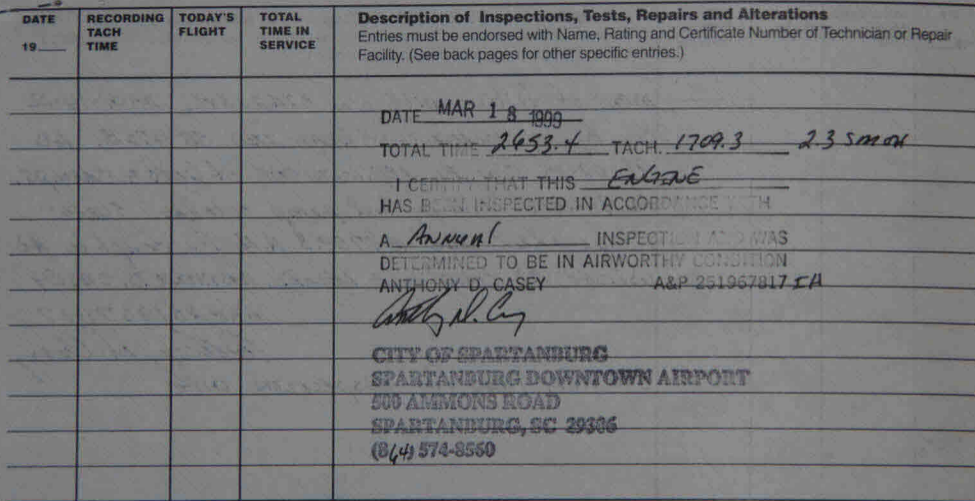 DATE
19
RECORDING TACH TIME
TODAY'S FLIGHT
TOTAL TIME IN SERVICE
Description of Inspections, Tests, Repairs and Alterations
Entries must be endorsed with Name, Rating and Certificate Number of Technician or Repair
Facility. (See back pages for other specific entries.)
DATE MAR 18 1999
TOTAL TIME 2653.4 TACH. 1709.3 2.3 SMOH
I CERTIFY THAT THIS ENGINE
HAS BEEN INSPECTED IN ACCORDANCE WITH
A ANNUAl INSPECTION AND WAS
DETERMINED TO BE IN AIRWORTHY CONDITION
ANTHONY D. CASEY A&P 251967817 IA
CITY OF SPARTANBURG
SPARTANBURG DOWNTOWN AIRPORT
500 AMMONS ROAD
SPARTANBURG, SC 29306
(864) 574-8560